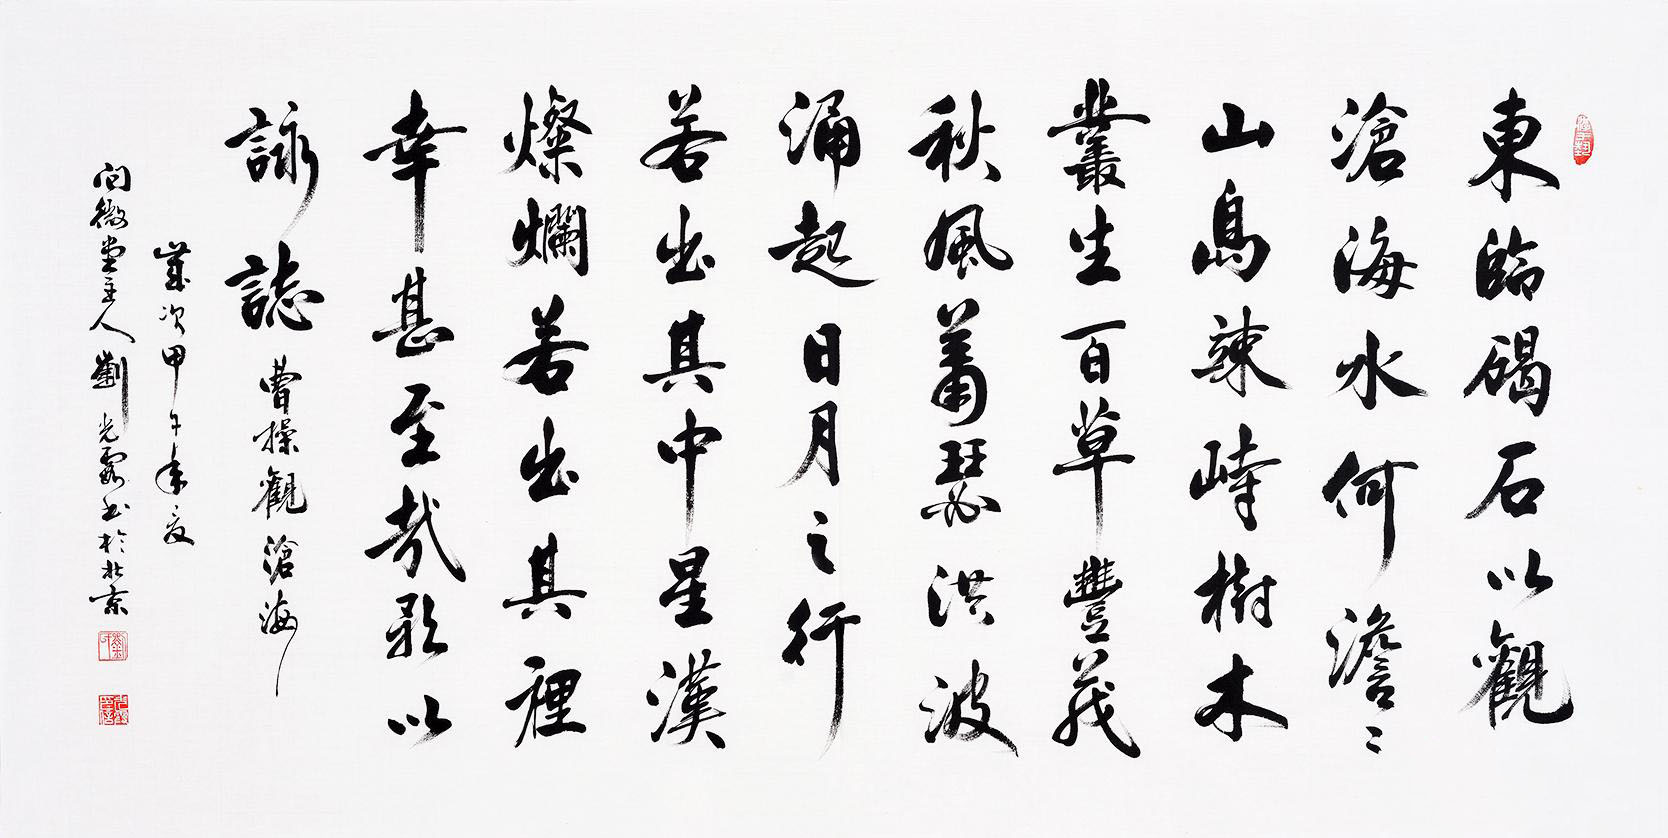 東臨碣石以觀
滄海水何澹〻
山島竦峙樹木
叢生百草豐茂
秋風蕭瑟洪波
涌起日月之行
若出其中星漢
燦爛若出其裡
幸甚至哉歌以
詠誌曹操觀滄海
歲次甲午年夏
問微堂主人劉光霞书於北京